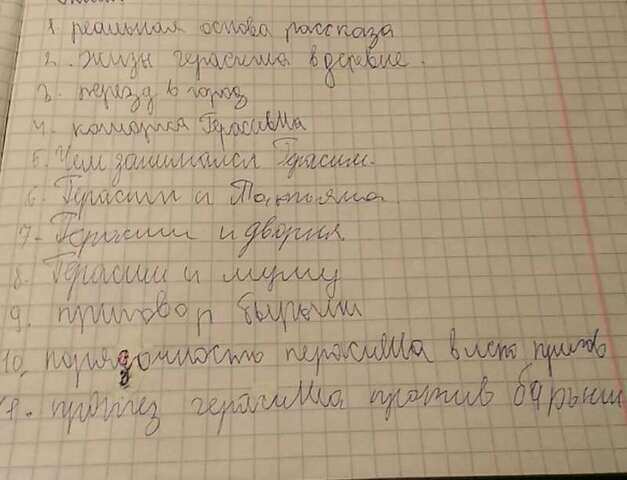 1. реальная основа рассказа
2. жизы герасима в деревне.
3. переезд в город
4. каморка Герасима
5. Чем занимался Герасим.
6. Герасим и Татьяна
7- Герасим и дворня
8. Герасим и муму
9. приговор барыни
10. порядочность герасима
11. протез герасима против барыни